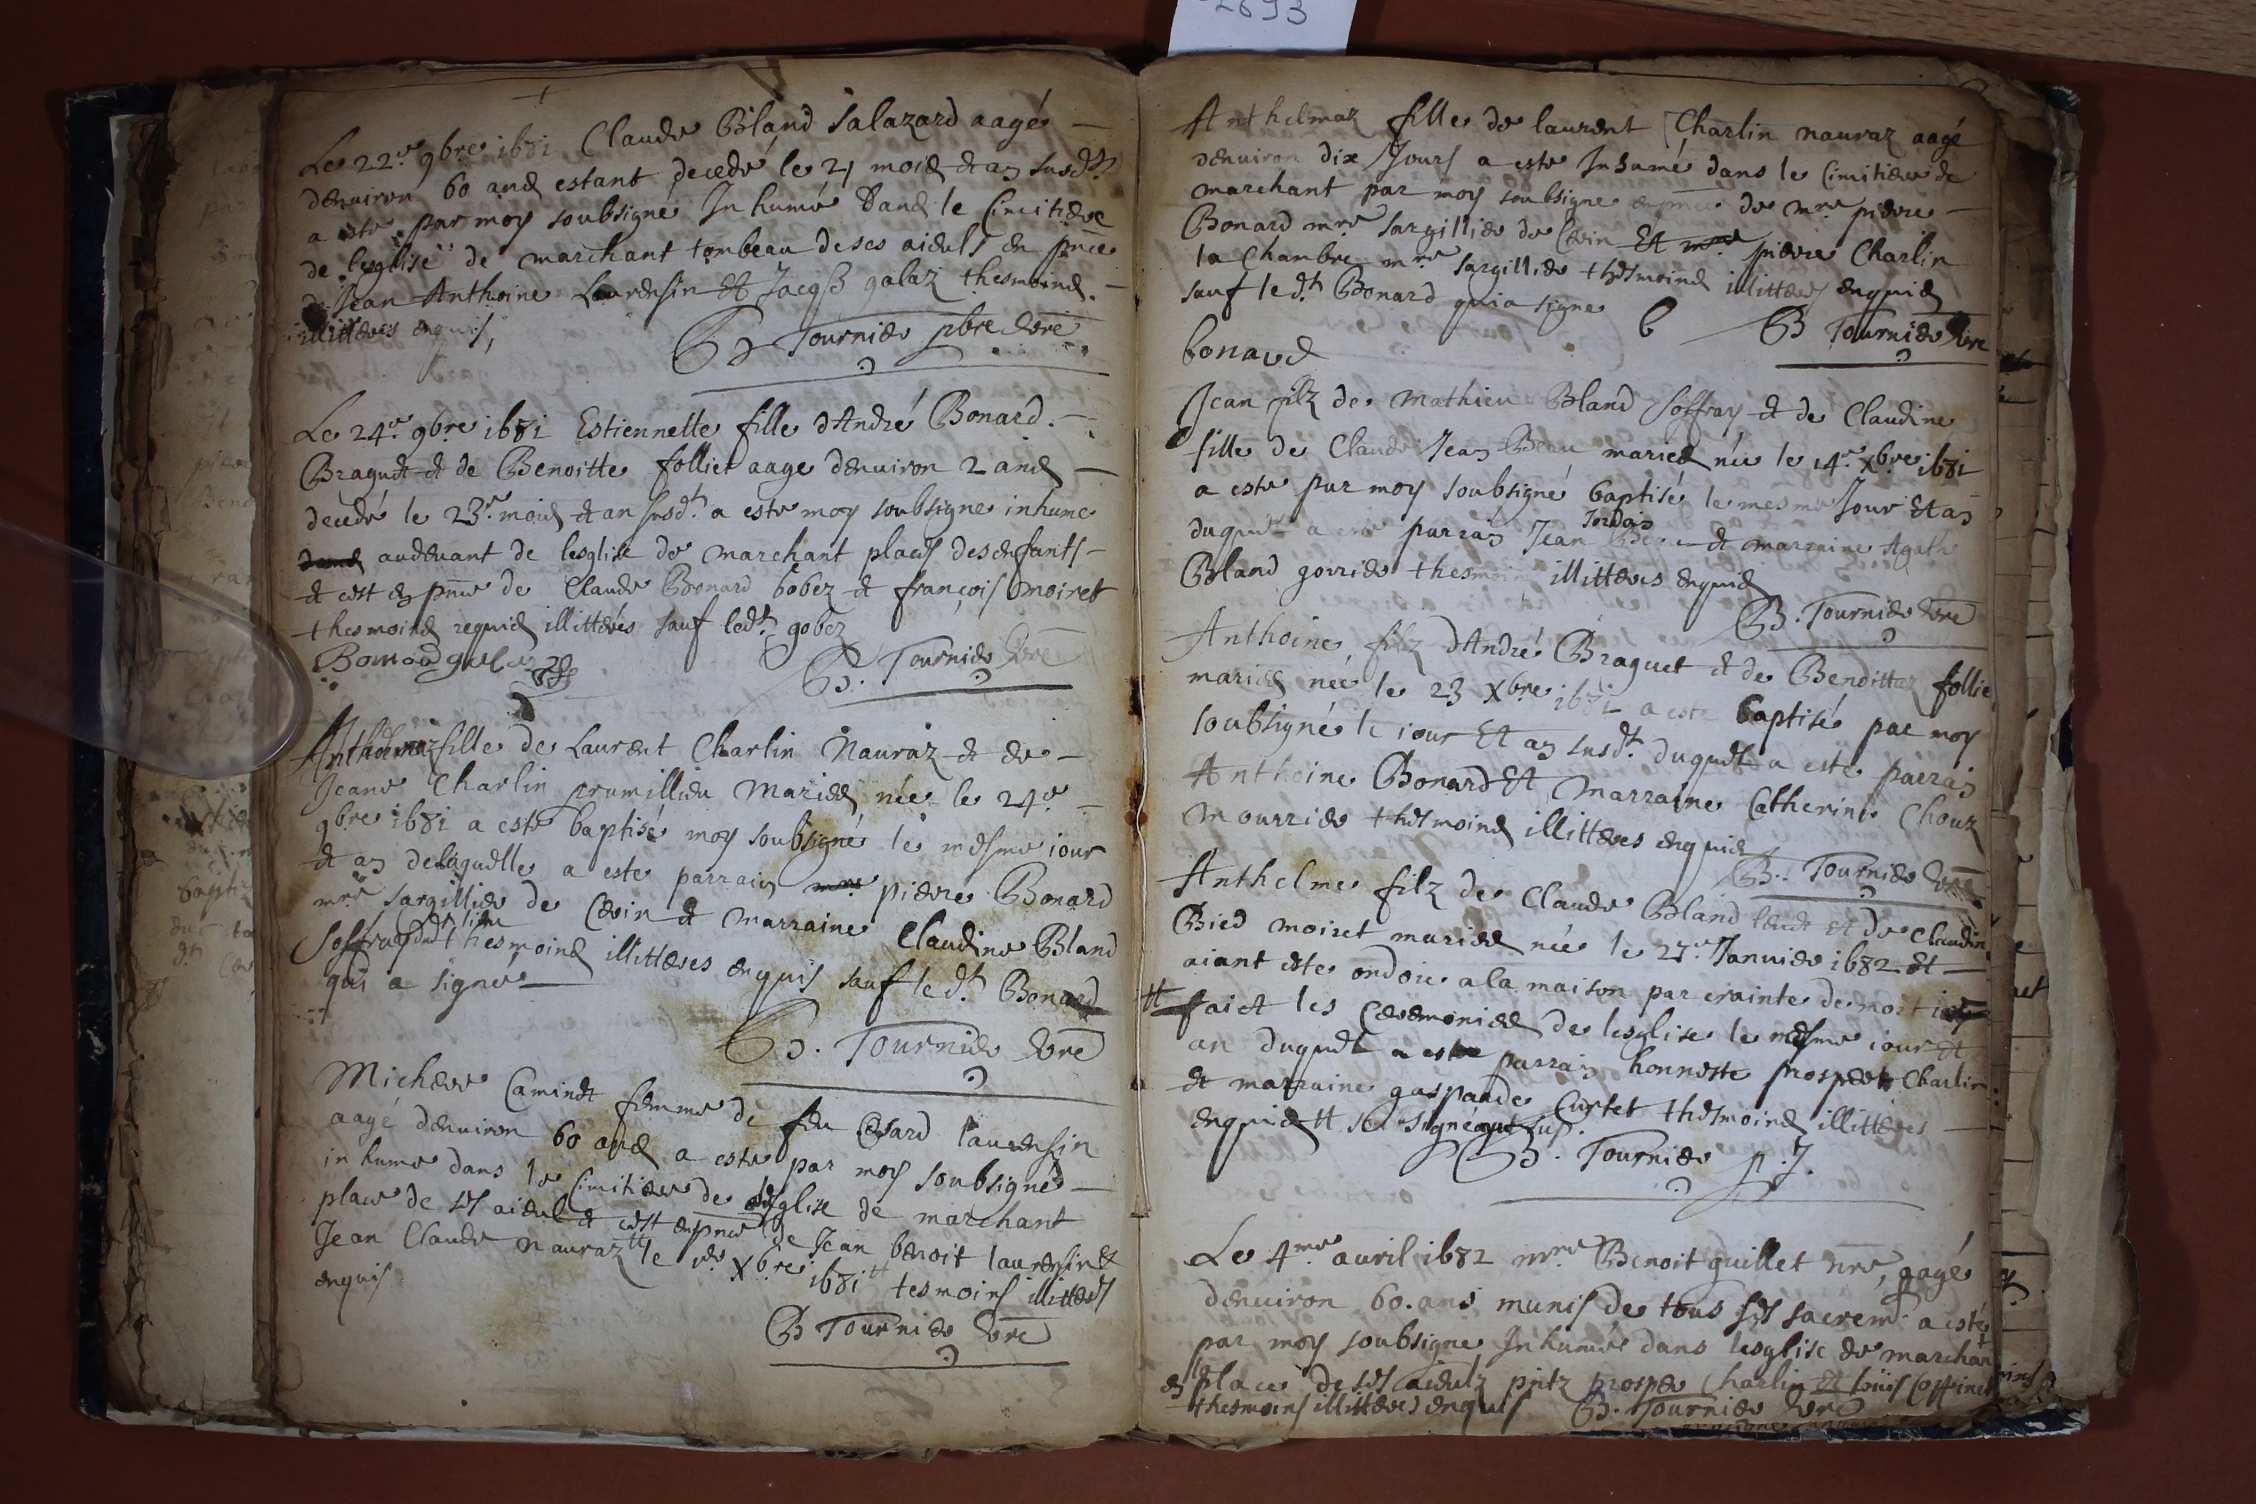 2693
Le 22e 9bre 1681 Claude Bland Salazard aagé
denviron 60 ans estant decedé le 21 mois et an susdt
a este par moy soubsigné Inhumé dans le Cimitiere
de l'esglise de marchant tombeau de ses aieuls en pnce
de Jean Anthoine Laurensin et Jacqs galaz thesmoins
illitteres enquis,
B Tournier pbre Vre
Le 24e 9bre 1681 Estiennette fille d'André Bonard
Braguet et de Benoitte follier aage denviron 2 ans
decedé le 23e mois et an susdt a este moy soubsigne inhume
audevant de lesglise de marchant place des enfants
et cest en pnce de Claude Bonard bobez et françois moiret
thesmoins requis illitterés sauf ledt gobez
B. Tournier Vre
Anthelmaz fille de Laurent Charlin Nauraz et de
Jeane Charlin prumillieu Mariés née le 24e
9bre 1681 a este baptisé moy soubsigné le mesme iour
et an delaquelle a este parrain mre pierre Bonard
mre sargillier de Cevin et marraine Claudine Bland
Soffray dudt lieu thesmoins illitteres enquis sauf ledt Bonard
qui a signé
B. Tournier Vre
Michere Caminet femme de feu Cesard laurensin
aagé denviron 60 ans a este par moy soubsigné
inhume dans le Cimitiere de lesglise de marchant
place de ses aieuls et cest enpnce de Jean benoit laurensin et
Jean Claude nauraz le Xbre 1681 tesmoins illitteres
enquis
B Tournier Vre
Anthelmaz fille de laurent Charlin nauraz aagé
denviron dix Jours a este Inhumé dans le Cimitiere de
marchant par moy soubsigne enpnce de mre pierre
Bonard mre sargillier de Cevin Et mre pierre Charlin
la Chambre mre sargillier thesmoins illitteres enquis
sauf ledt Bonard qui a signe
B Tournier Vre
bonard
Jean filz de Mathieu Bland Soffray et de Claudine
fille de Claude Jean Beau mariés née le 14e Xbre 1681
a este par moy soubsigné baptisé le mesme Jour et an
duquel a este parrain Jean Jordain et marraine Agathe
Bland gorrier thesmoins illitteres enquis
B. Tournier Vre
Anthoine filz d'André Braguet et de Benoittaz follie
mariés née le 23 Xbre 1681 a este baptisé par moy
soubsigné le iour et an susdt duquel a este parrain
Anthoine Bonard Et Marraine Catherine Chouz
mourrier thesmoins illitteres enquis
B. Tournier Vre
Anthelme filz de Claude Bland et de Claudine
Bied moiret mariés née le 27e Janvier 1682 et
aiant este ondoie a la maison par crainte de mort
faict les Ceremonies de lesglise le mesme iour et
an duquel a este parrain honneste prosper Charlin
et marraine gasparde Curtet thesmoins illitteres
enquis
B. Tournier p.J.
Le 4me avril 1682 mre Benoit guillet nre, aagé
denviron 60. ans munis de tous ses sacremts a esté
par moy soubsigne Inhumé dans lesglise de marchant
en la place de ses aieulz pntz prosper Charlin et
thesmoins illitteres enquis B. Tournier Vre